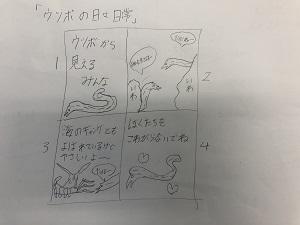 「ウツボの日々日常」
1
ウツボから
見える
みんな
2
いわ
いわ
3
海のギャングとも
よばれているけど
やさしいよ〜
4
ぼくたちを
こわがらないでね